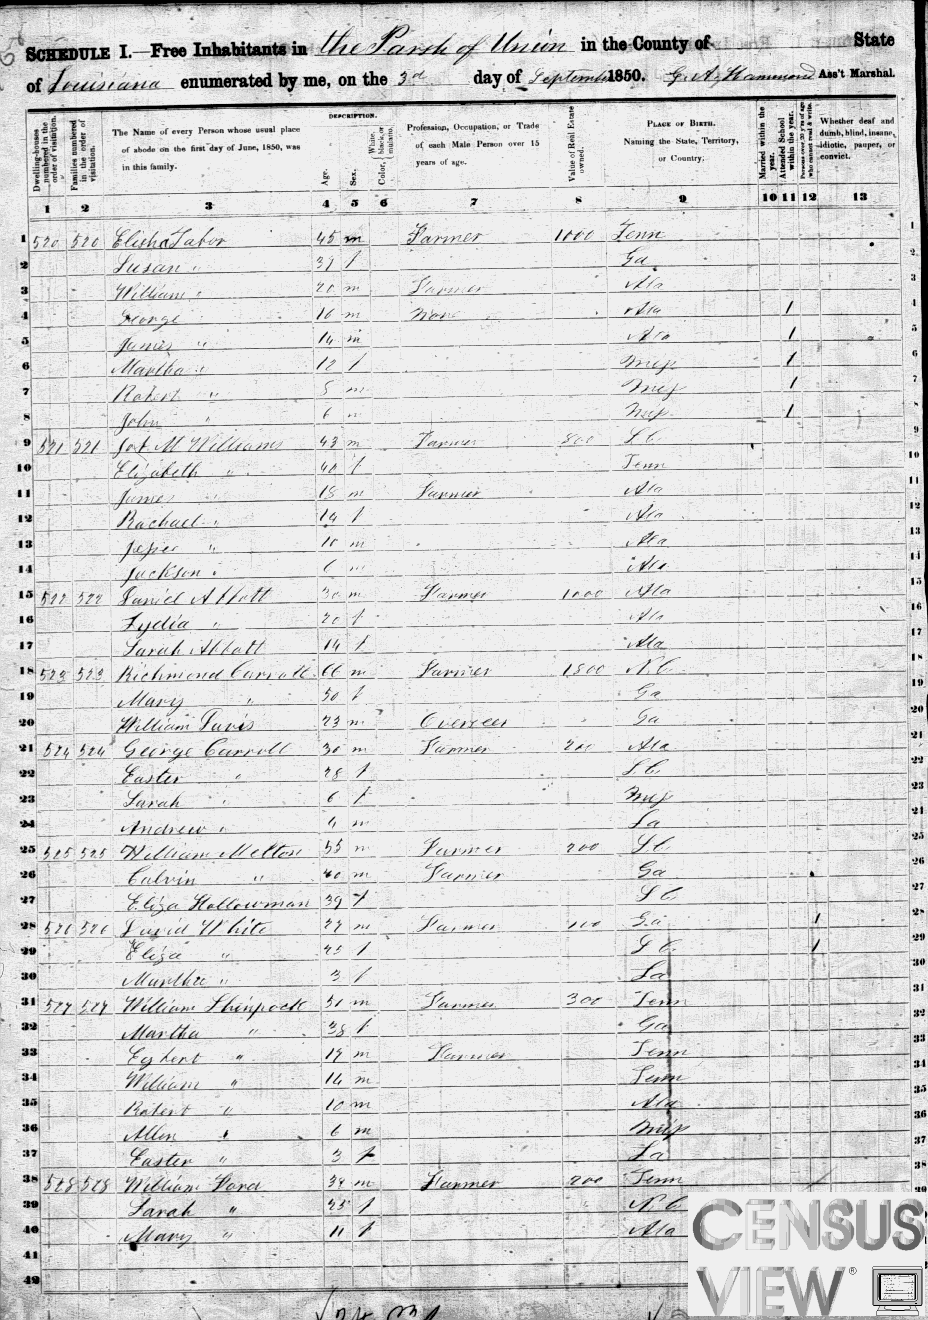 SCHEDULE I.—Free Inhabitants in the Parish of Union in the County of State
of Louisiana enumerated by me, on the 3rd day of September 1850. G. A. Hammond Ass't Marshal.
Dwelling-houses numbered in the order of visitation.
Families numbered in the order of visitation.
The Name of every Person whose usual place of abode on the first day of June, 1850, was in this family.
DESCRIPTION.
Age.
Sex.
Color, White, black, or mulatto.
Profession, Occupation, or Trade of each Male Person over 15 years of age.
Value of Real Estate owned.
PLACE OF BIRTH. Naming the State, Territory, or Country.
Married within the year.
Attended School within the year.
Persons over 20 y'rs of age who cannot read & write.
Whether deaf and dumb, blind, insane, idiotic, pauper, or convict.
1 2 3 4 5 6 7 8 9 10 11 12 13
1 520 520 Elisha Tabor 45 m Farmer 1000 Tenn 1
2 Susan " 39 f Ga 2
3 William " 20 m Farmer Ala 3
4 George 16 m None Ala 1 4
5 James " 14 m Ala 1 5
6 Martha " 12 f Miss 1 6
7 Robert " m Miss 1 7
8 John " 6 m Miss 1 8
9 521 521 M Williams 43 m Farmer 800 S C 9
10 Elizabeth " 40 f Tenn 10
11 James " 18 m Farmer Ala 11
12 Rachael " 14 f Ala 12
13 Jesper " 10 m Ala 13
14 Jackson " 6 m Ala 14
15 522 522 Daniel Abbott 30 m Farmer 1000 Ala 15
16 Lydia " 20 f Ala 16
17 Sarah Abbott 14 f Ala 17
18 523 523 Richmond Carroll 66 m Farmer 1800 N. C 18
19 Mary " 50 f Ga 19
20 William Davis 23 m Overseer Ga 20
21 524 524 George Carroll 30 m Farmer 200 Ala 21
22 Easter " 28 f S. C 22
23 Sarah " 6 f Miss 23
24 Andrew " 4 m La 24
25 525 525 William Melton 55 m Farmer 200 S C 25
26 Calvin " 20 m Farmer Ga 26
27 Eliza Hollowman 39 f S C 27
28 526 526 David White 27 m Farmer 100 Ga 1 28
29 Eliza " 25 f S C 1 29
30 Martha " 3 f La 30
31 527 527 William Shinpock 51 m Farmer 300 Tenn 31
32 Martha " 38 f Ga 32
33 Egbert " 19 m Farmer Tenn 33
34 William " 14 m Tenn 34
35 Robert " 10 m Ala 35
36 Allen " 6 m Miss 36
37 Easter " 3 f La 37
38 528 528 William Ford 34 m Farmer 200 Tenn 38
39 Sarah " 25 f N. C 39
40 Mary " 11 f Ala
41
42
CENSUS
VIEW®